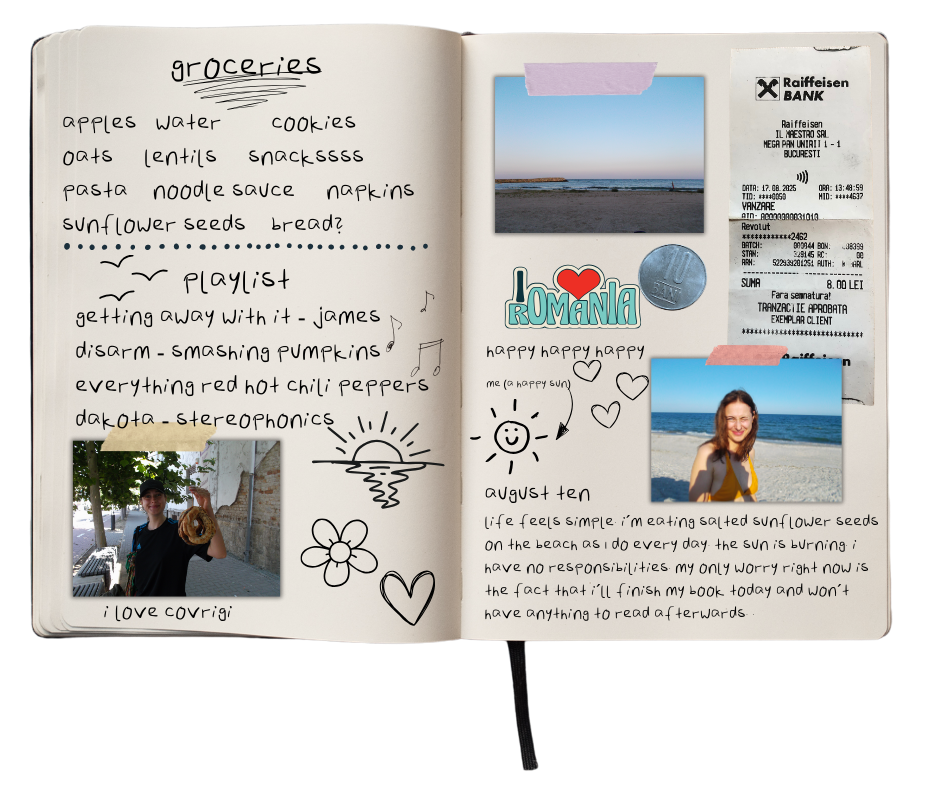 groceries
apples water cookies
oats lentils snackssss
pasta noodle sauce napkins
sunflower seeds bread?
playlist
getting away with it - james
disarm - smashing pumpkins
everything red hot chili peppers
dakota - stereophonics
i love covrigi
Raiffeisen
BANK
Raiffeisen
IL MAESTRO SRL
MEGA PAN UNIRII 1 - 1
BUCURESTI
DATA: 17.08.2025 ORA: 13:48:59
TID: ****0050 MID: ****4637
VANZARE
Revolut
************2462
BATCH: BON:
STAN:
ARN: AUTH:
SUMA 8.00 LEI
Fara semnatura!
TRANZACTIE APROBATA
EXEMPLAR CLIENT
Raiffeisen
I ROMANIA
10
BANI
happy happy happy
me (a happy sun)
august ten
life feels simple. i'm eating salted sunflower seeds
on the beach as i do every day. the sun is burning. i
have no responsibilities. my only worry right now is
the fact that i'll finish my book today and won't
have anything to read afterwards...